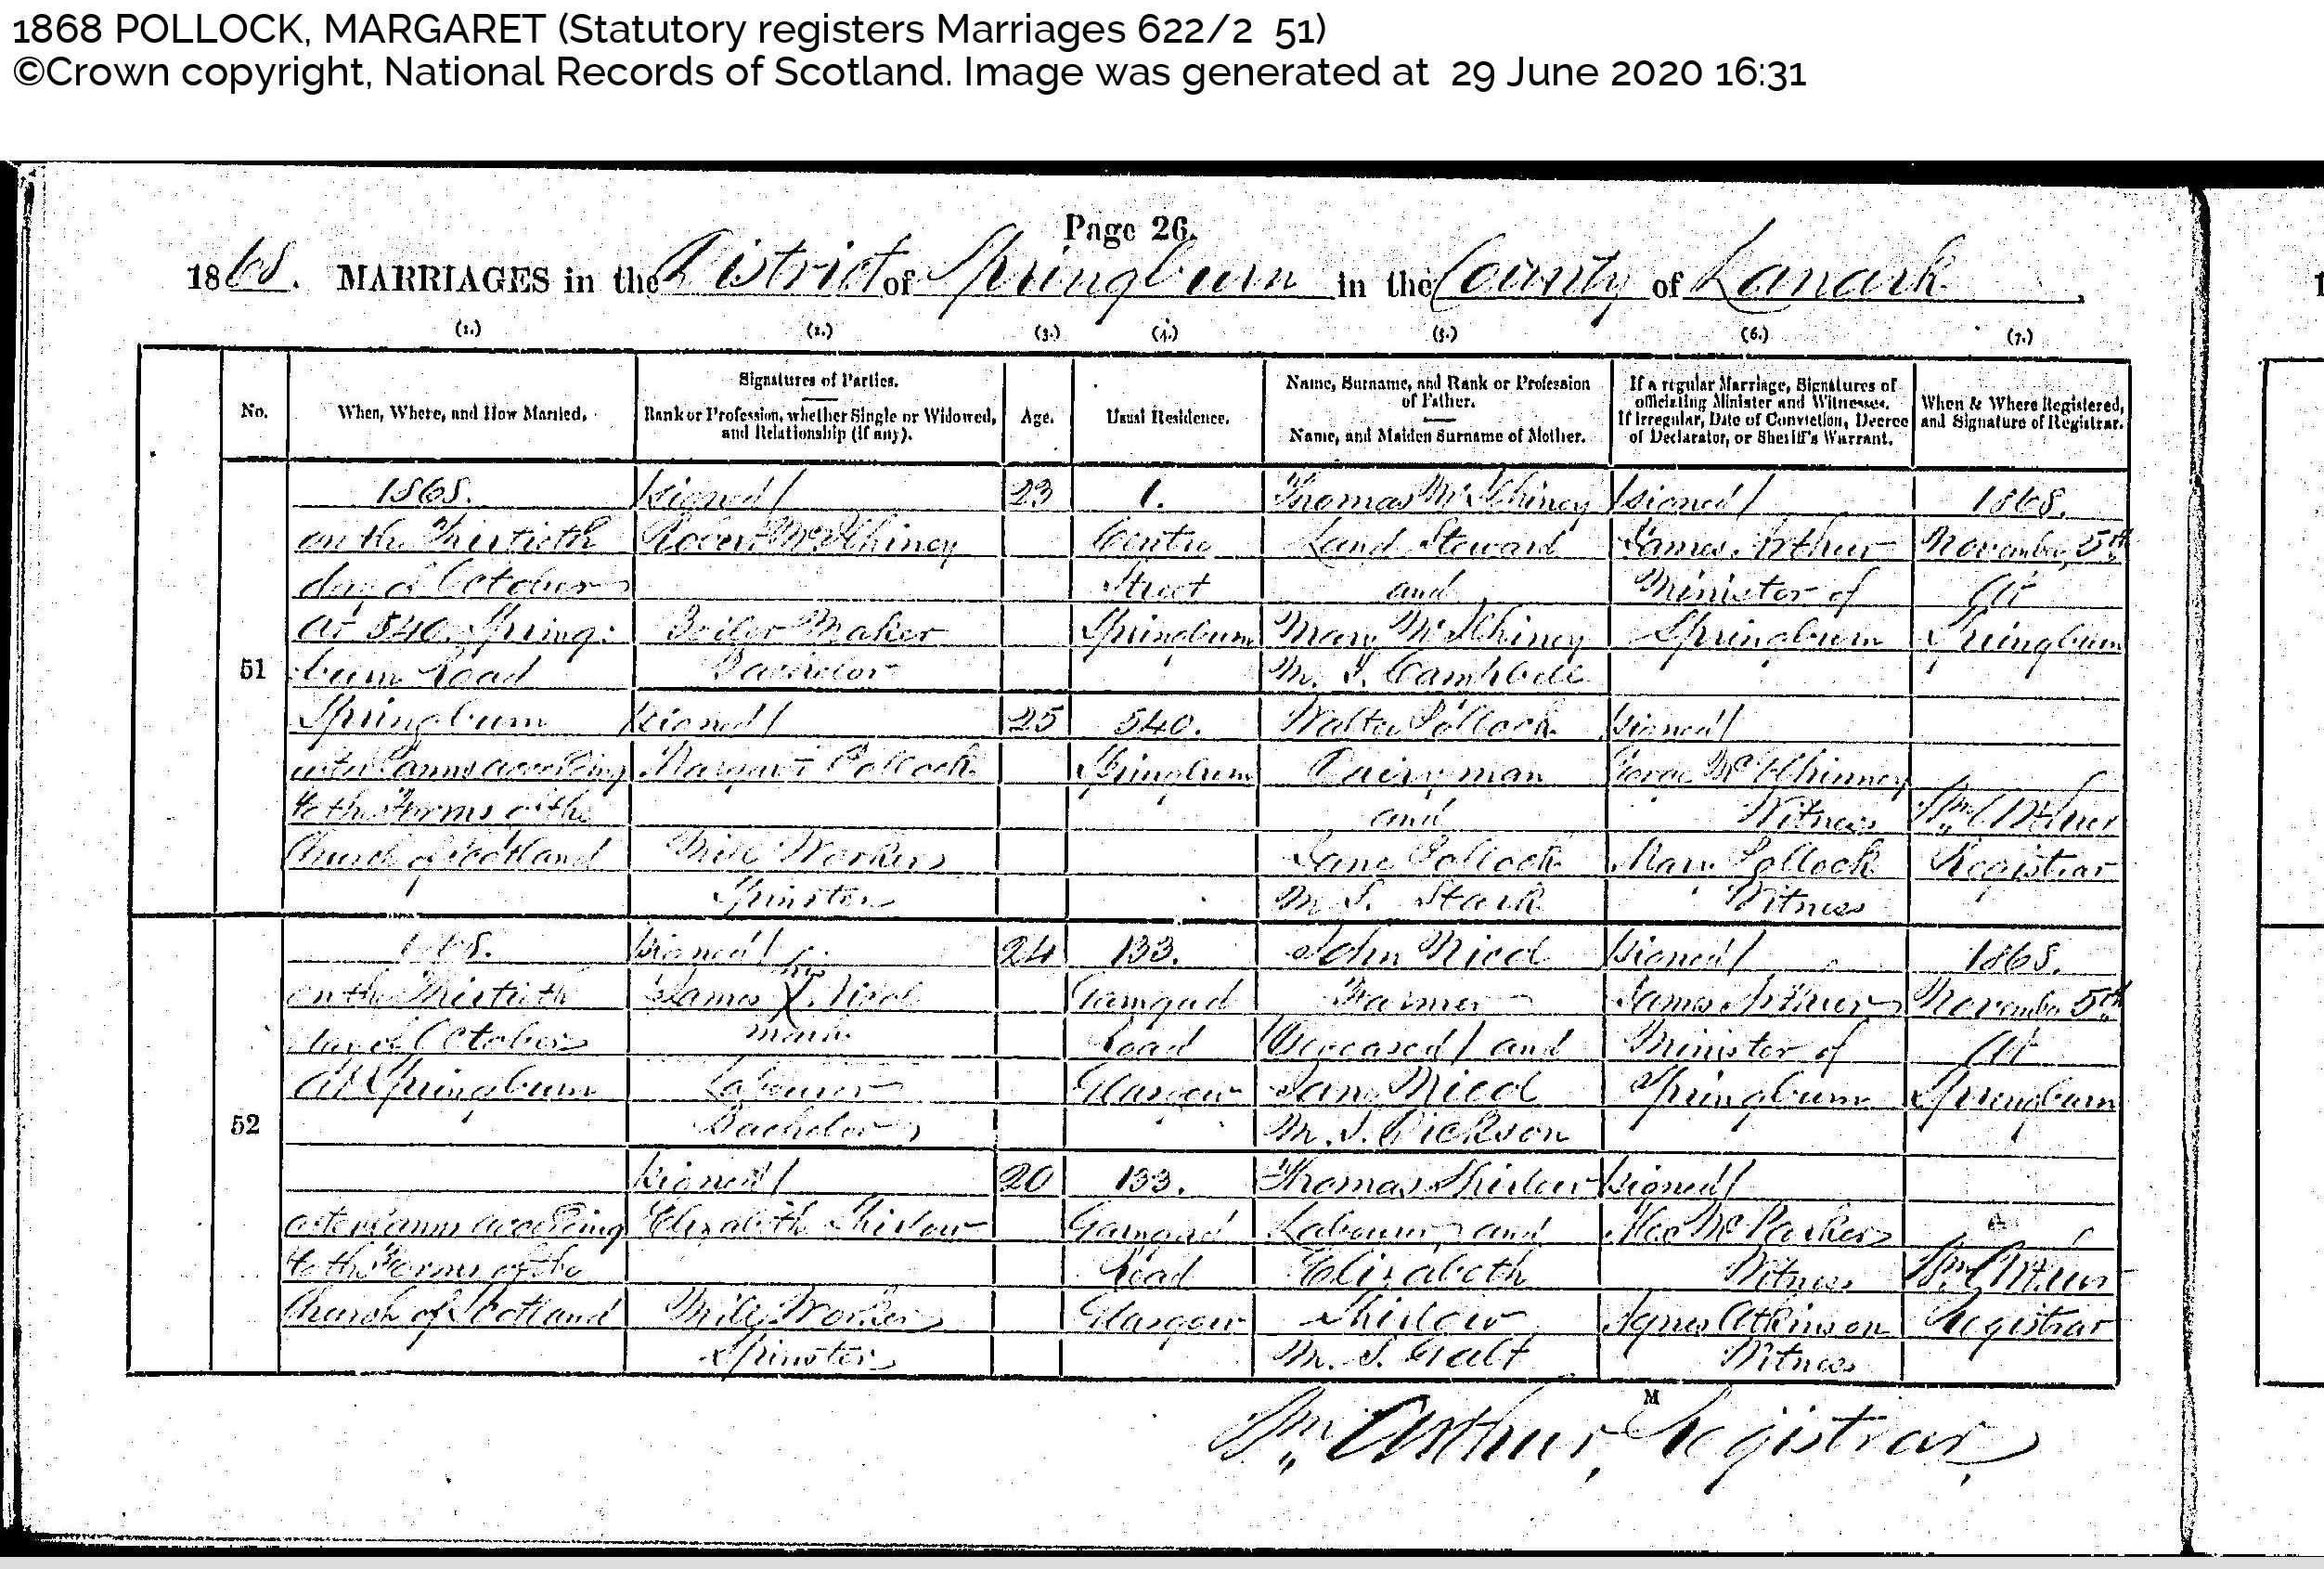 1868 POLLOCK, MARGARET (Statutory registers Marriages 622/2 51)
©Crown copyright, National Records of Scotland. Image was generated at 29 June 2020 16:31
Page 26.
1868. MARRIAGES in the District of Springburn in the County of Lanark
(1.) (2.) (3.) (4.) (5.) (6.) (7.)
No.
When, Where, and How Married.
Signatures of Parties.
Rank or Profession, whether Single or Widowed,
and Relationship (if any).
Age.
Usual Residence.
Name, Surname, and Rank or Profession
of Father.
Name, and Maiden Surname of Mother.
If a regular Marriage, Signatures of
officiating Minister and Witnesses.
If irregular, Date of Conviction, Decree
of Declarator, or Sheriff's Warrant.
When & Where Registered,
and Signature of Registrar.
51
1868.
on the Thirtieth
day of October
at 540 Spring:
burn Road
Springburn
after Banns according
to the Forms of the
Church of Scotland
(signed)
Robert McIlhiney
Boiler Maker
Bachelor
(signed)
Margaret Pollock
Mill Worker
Spinster
23
25
1.
Centre
Street
Springburn
540.
Springburn
Thomas McIlhiney
Land Steward
and
Mary McIlhiney
M. S. Campbell
Walter Pollock
Dairyman
and
Jane Pollock
M. S. Stark
(signed)
James Arthur
Minister of
Springburn
(signed)
George McIlhinney
Witness
Mary Pollock
Witness
1868.
November 5th
At
Springburn
Wm. Arthur
Registrar
52
1868.
on the Thirtieth
day of October
At Springburn
after Banns according
to the Forms of the
Church of Scotland
(signed)
his
James X Nicol
mark
Labourer
Bachelor
(signed)
Elizabeth Shirlow
Mill Worker
Spinster
24
20
133.
Garngad
Road
Glasgow
133.
Garngad
Road
Glasgow
John Nicol
Farmer
(Deceased) and
Jane Nicol
M. S. Dickson
Thomas Shirlow
Labourer and
Elizabeth
Shirlow
M. S. Galt
(signed)
James Arthur
Minister of
Springburn
(signed)
Alex McParker
Witness
Agnes Atkinson
Witness
1868.
November 5th
At
Springburn
Wm. Arthur
Registrar
M
Wm. Arthur, Registrar.